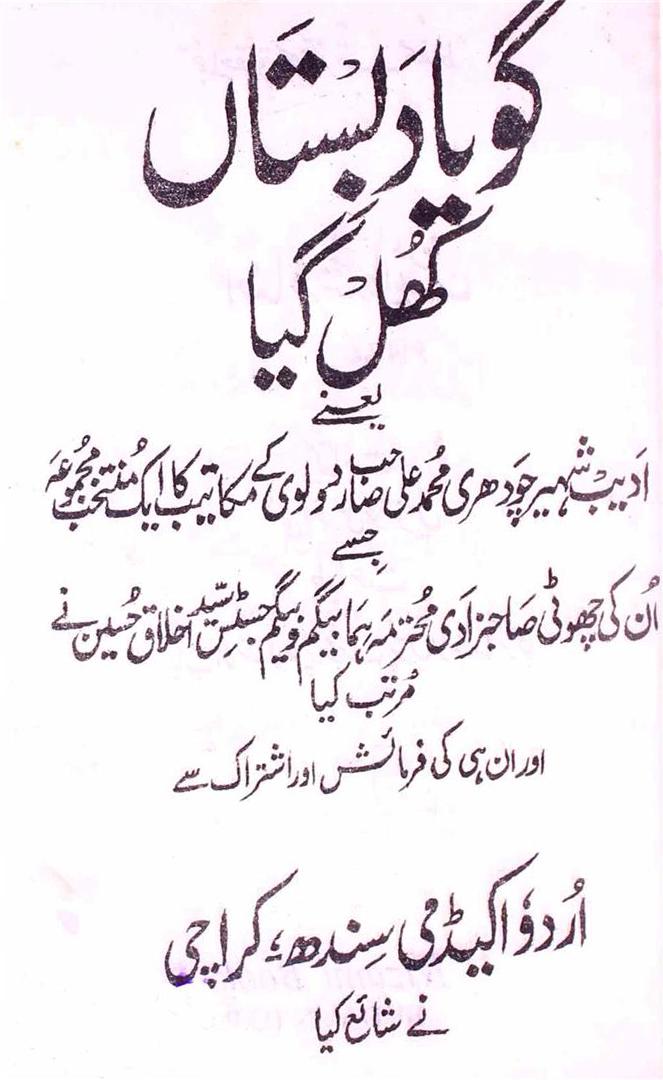 گویا دَبِسْتَاں
کھُلْ گیا
یعنے
اَدیبْ شہیر چَودھری مُحمد علی صَاحب ردولوی کے مکاتیب کا ایک مُنتخب مجُموعَہ
جِسے
اُن کی چھوٹی صَاحبزادَی محُترمہ ہُما بیگم و بیگم جسٹِس سَیّد اخلاق حُسین نے
مُرتب کیا
اور ان ہی کی فرمائش اور اشتراک سے
اُردوُ اکیڈمی سِندھ؛ کراچی
نے شائع کیا